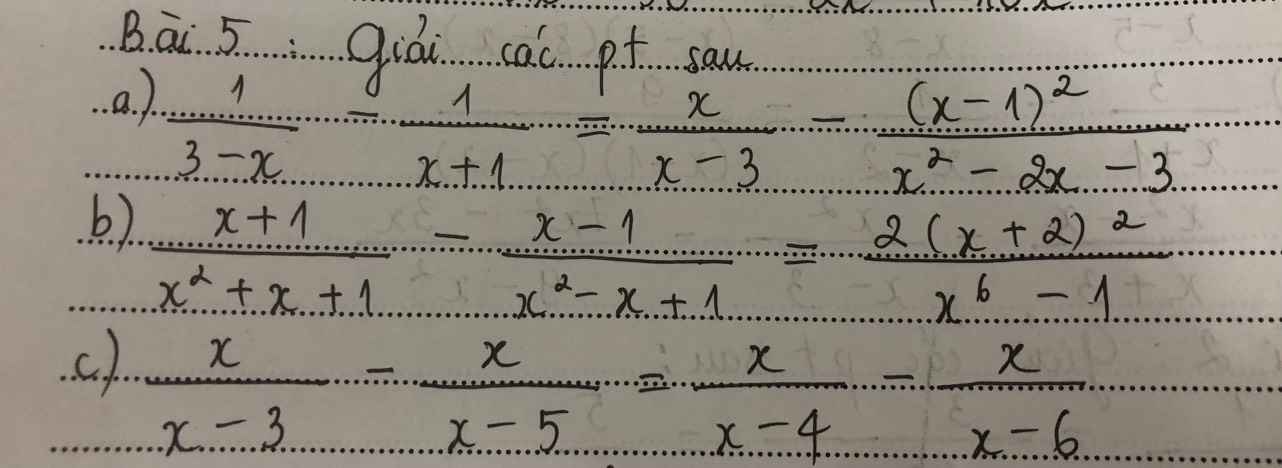 Bài 5 : Giải các pt sau
a) 1/(3-x) - 1/(x+1) = x/(x-3) - (x-1)²/(x²-2x-3)
b) (x+1)/(x²+x+1) - (x-1)/(x²-x+1) = 2(x+2)²/(x⁶-1)
c) x/(x-3) - x/(x-5) = x/(x-4) - x/(x-6)